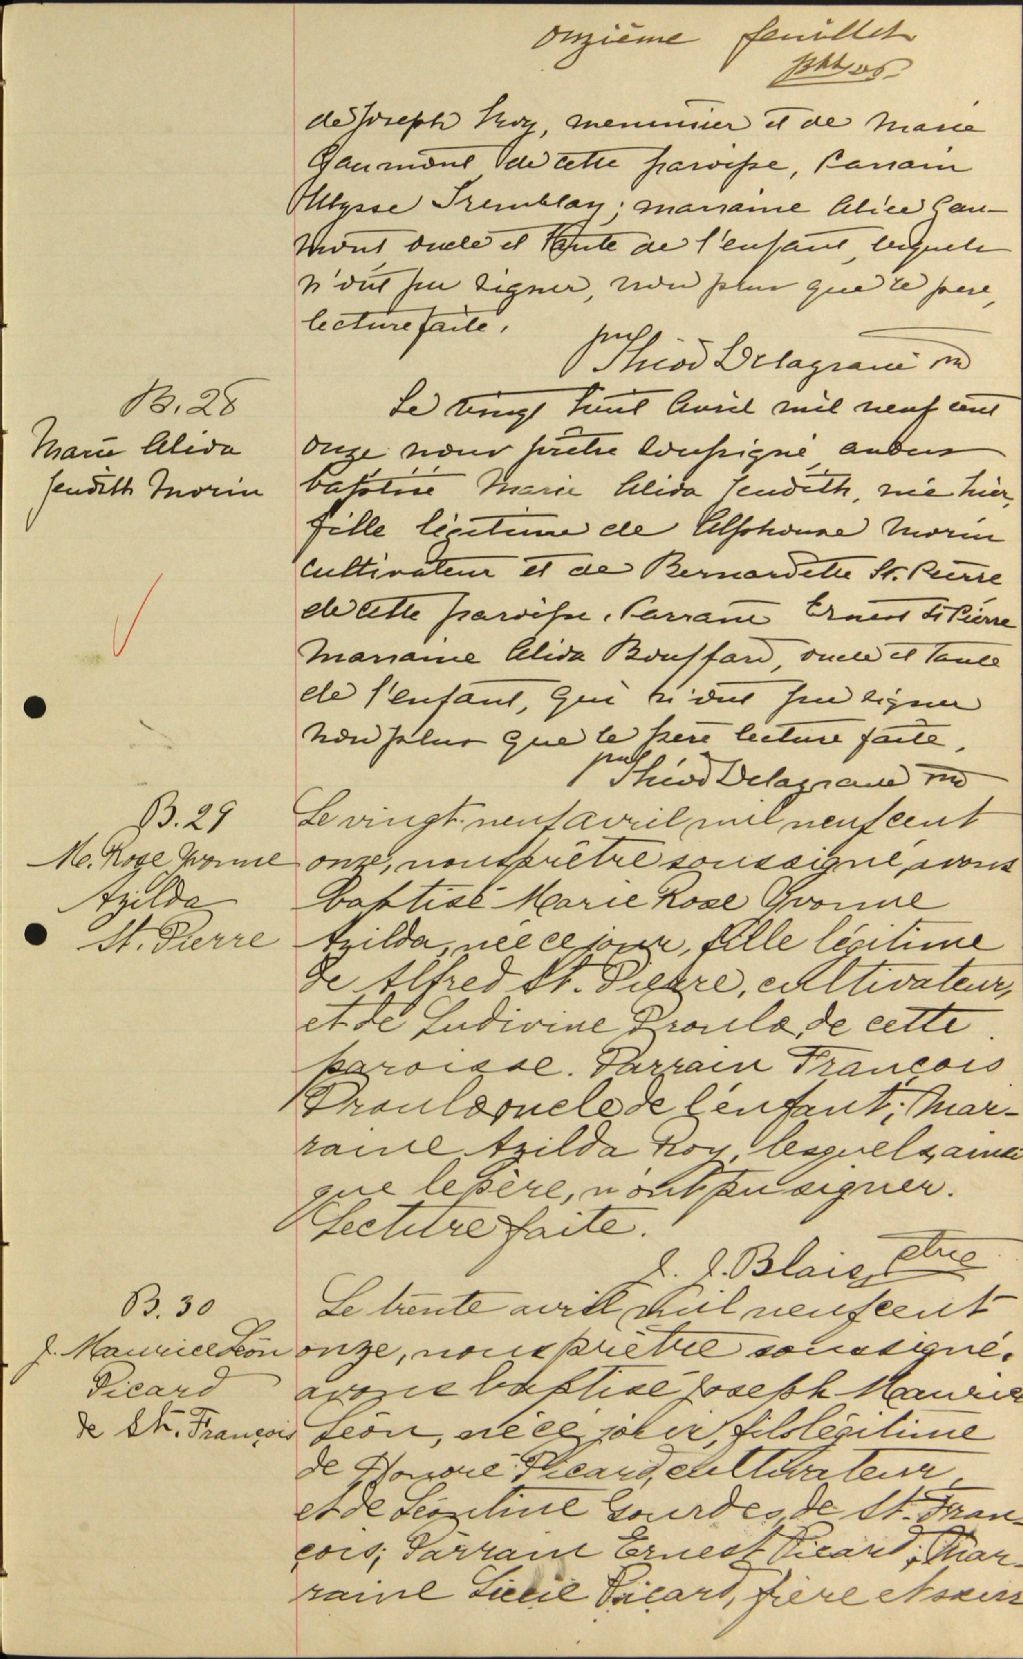 onzième feuillet
de Joseph Roy, menuisier et de Marie
Gaumont de cette paroisse, Parrain
Ulysse Tremblay; marraine Alice Gau-
mont, oncle et tante de l'enfant, lesquels
n'ont pu signer, non plus que le père,
lecture faite.
Théod Delagrave
B. 28
Marie Alida
Jeudith Morin
Le vingt huit Avril mil neuf cent
onze nous prêtre soussigné, avons
baptisé Marie Alida Jeudith, née hier,
fille légitime de Alphonse Morin
cultivateur et de Bernardette St. Pierre
de cette paroisse. Parrain Ernest St Pierre
Marraine Alida Bouffard, oncle et tante
de l'enfant, qui n'ont pu signer
non plus que le père lecture faite.
Théod Delagrave
B. 29
M. Rose Yvonne
Azilda
St. Pierre
Le vingt-neuf avril mil neuf cent
onze, nous prêtre soussigné, avons
baptisé Marie Rose Yvonne
Azilda, née ce jour, fille légitime
de Alfred St. Pierre, cultivateur,
et de Ludivine Proulx, de cette
paroisse. Parrain François
Proulx, oncle de l'enfant; Mar-
raine Azilda Roy, lesquels, ainsi
que le père, n'ont pu signer.
Lecture faite.
J. J. Blais, ptre
B. 30
J. Maurice Léon
Picard
de St. François
Le trente avril mil neuf cent
onze, nous prêtre soussigné,
avons baptisé Joseph Maurice
Léon, né ce jour, fils légitime
de Honoré Picard, cultivateur,
et de Léontine Gourdes, de St. Fran-
çois; Parrain Ernest Picard; Mar-
raine Picard, frère et soeur